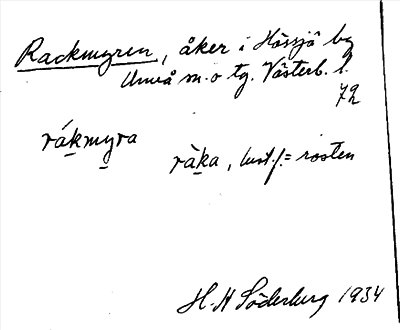 Rackmyren, åker i Hössjö by
Umeå m. o tg. Västerb. l.
72
råkmyra
råka, best. f. = rosten
H. H Söderburg 1934